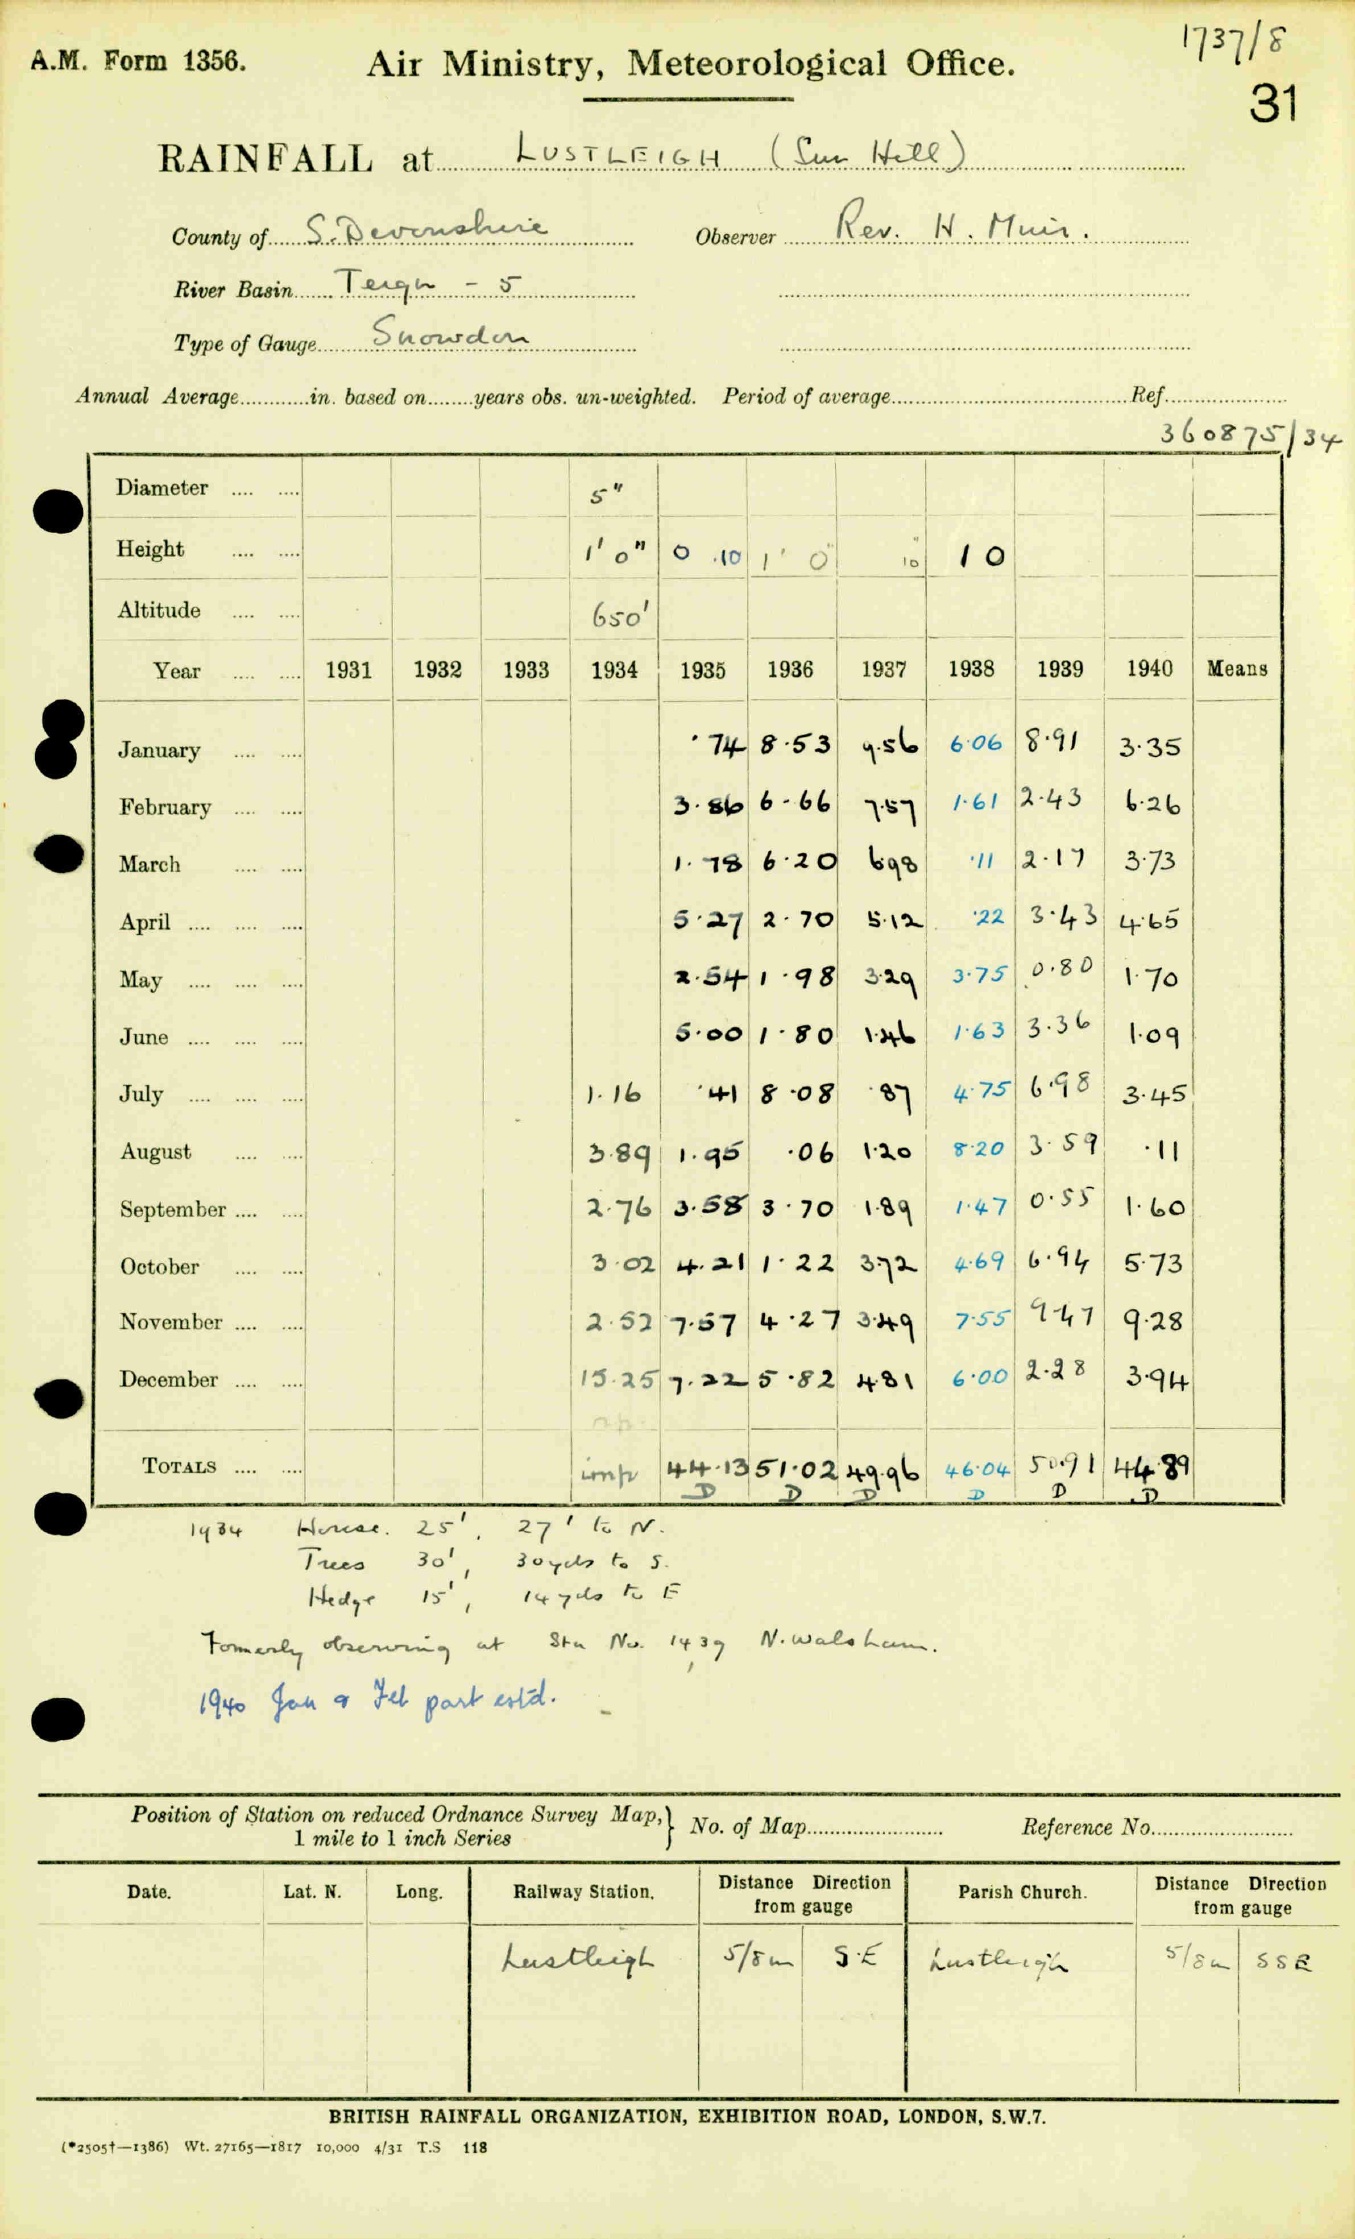 1737/8
A.M. Form 1356. Air Ministry, Meteorological Office.
31
RAINFALL at LUSTLEIGH (Sun Hill)
County of S. Devonshire Observer Rev. H. Muir.
River Basin Teign - 5
Type of Gauge Snowdon
Annual Average............in. based on........years obs. un-weighted. Period of average........................Ref.....................
360875/34
Diameter .... .... 5"
Height .... .... 1' 0" 0 .10 1' 0" 10" 10
Altitude .... .... 650'
Year .... .... 1931 1932 1933 1934 1935 1936 1937 1938 1939 1940 Means
January .... .... ·74 8·53 9·56 6·06 8·91 3·35
February .... .... 3·86 6·66 7·57 1·61 2·43 6·26
March .... .... 1·78 6·20 6·98 ·11 2·17 3·73
April .... .... .... 5·27 2·70 5·12 ·22 3·43 4·65
May .... .... .... 2·54 1·98 3·29 3·75 0·80 1·70
June .... .... .... 5·00 1·80 1·46 1·63 3·36 1·09
July .... .... .... 1·16 ·41 8·08 ·87 4·75 6·98 3·45
August .... .... 3·89 1·95 ·06 1·20 8·20 3·59 ·11
September .... .... 2·76 3·58 3·70 1·89 1·47 0·55 1·60
October .... .... 3·02 4·21 1·22 3·72 4·69 6·94 5·73
November .... .... 2·52 7·57 4·27 3·49 7·55 9·47 9·28
December .... .... 15·25 7·22 5·82 4·81 6·00 2·28 3·94
TOTALS .... .... imp 44·13 51·02 49·96 46·04 50·91 44·89
D D D D D D
1934 House. 25', 27' to N.
Trees 30', 30yds to S.
Hedge 15', 14yds to E
Formerly observing at Stn No. 1439 N. Walsham.
1940 Jan & Feb part estd.
Position of Station on reduced Ordnance Survey Map,} No. of Map........................ Reference No.........................
1 mile to 1 inch Series
Date. Lat. N. Long. Railway Station. Distance Direction from gauge Parish Church. Distance Direction from gauge
Lustleigh 5/8m S.E Lustleigh 5/8m SSE
BRITISH RAINFALL ORGANIZATION, EXHIBITION ROAD, LONDON, S.W.7.
(*2505†—1386) Wt. 27165—1817 10,000 4/31 T.S 118